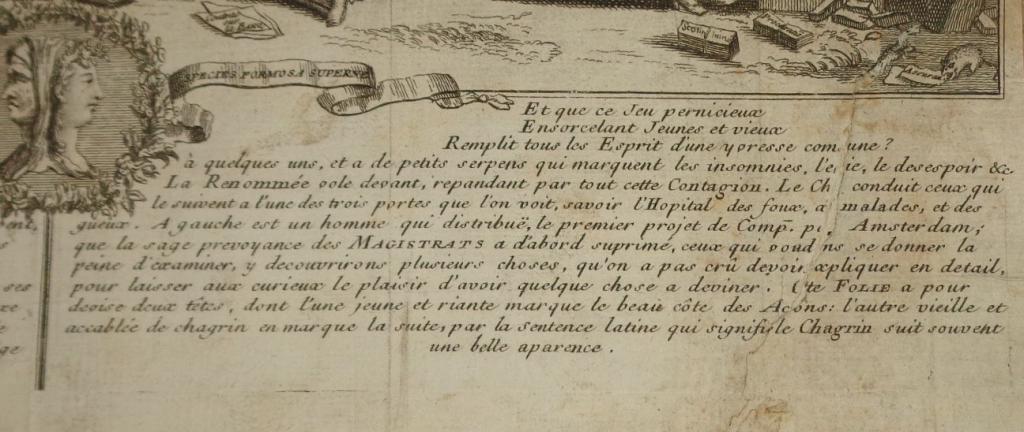 SPECIES FORMOSA SUPERNE
Et que ce Jeu pernicieux
Ensorcelant Jeunes et vieux
Remplit tous les Esprit d'une yvresse com une?
à quelques uns, et a de petits serpens qui marquent les insomnies, l'e ie, le desespoir &c
La Renommée vole devant, repandant par tout cette Contagion. Le Ch conduit ceux qui
le suivent a l'une des trois portes que l'on voit, savoir l'Hopital des foux, a malades, et des
gueux. A gauche est un homme qui distribuë, le premier projet de Comp. p Amsterdam;
que la sage prevoyance des MAGISTRATS a d'abord suprimé, ceux qui voud ns se donner la
peine d'examiner, y decouvrirons plusieurs choses, qu'on a pas crû devoir expliquer en detail,
pour laisser aux curieux le plaisir d'avoir quelque chose a deviner. C te FOLIE a pour
devise deux têtes, dont l'une jeune et riante marque le beau côte des Acons: l'autre vieille et
accablée de chagrin en marque la suite, par la sentence latine qui signifi le Chagrin suit souvent
une belle aparence.